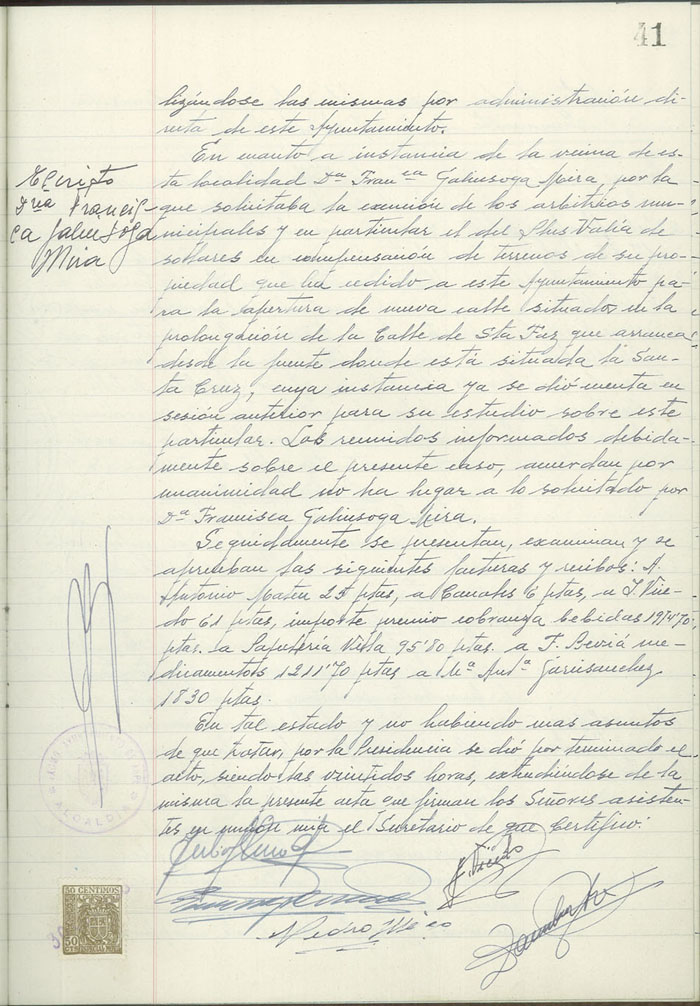 41
lizándose las mismas por administración di-
recta de este Ayuntamiento.
En cuanto a instancia de la vecina de es-
ta localidad Dª Franca Galiusoga Mira, por la
que solicitaba la exención de los arbitrios mu-
nicipales y en particular el del Plus Valía de
solares en compensación de terrenos de su pro-
piedad que ha cedido a este Ayuntamiento pa-
ra la apertura de nueva calle situado en la
prolongación de la Calle de Sta Faz que arranca
desde la fuente donde está situada la San-
ta Cruz, cuya instancia ya se dió cuenta en
sesión anterior para su estudio sobre este
particular. Los reunidos informados debida-
mente sobre el presente caso, acuerdan por
unanimidad no ha lugar a lo solicitado por
Dª Francisca Galiusoga Mira.
Seguidamente se presentan, examinan y se
aprueban las siguientes facturas y recibos: A
Antonio 25 ptas, a Canales 6 ptas, a J. Vice-
do 61 ptas, importe premio cobranza bebidas
ptas. la Papelería Villa 95'80 ptas. a F. Beviá me-
dicamentos 1211'70 ptas a Mª Antª
1830 ptas.
En tal estado y no habiendo mas asuntos
de que tratar, por la Presidencia se dió por terminado el
acto, siendo las veintidos horas, extendiéndose de la
misma la presente acta que firman los Señores asisten-
tes en unión mía el Secretario de que Certifico.
Escrito
Dña Francis-
ca Galiusoga
Mira
ALCALDIA
50 CENTIMOS
50
J. Vicedo
Pedro